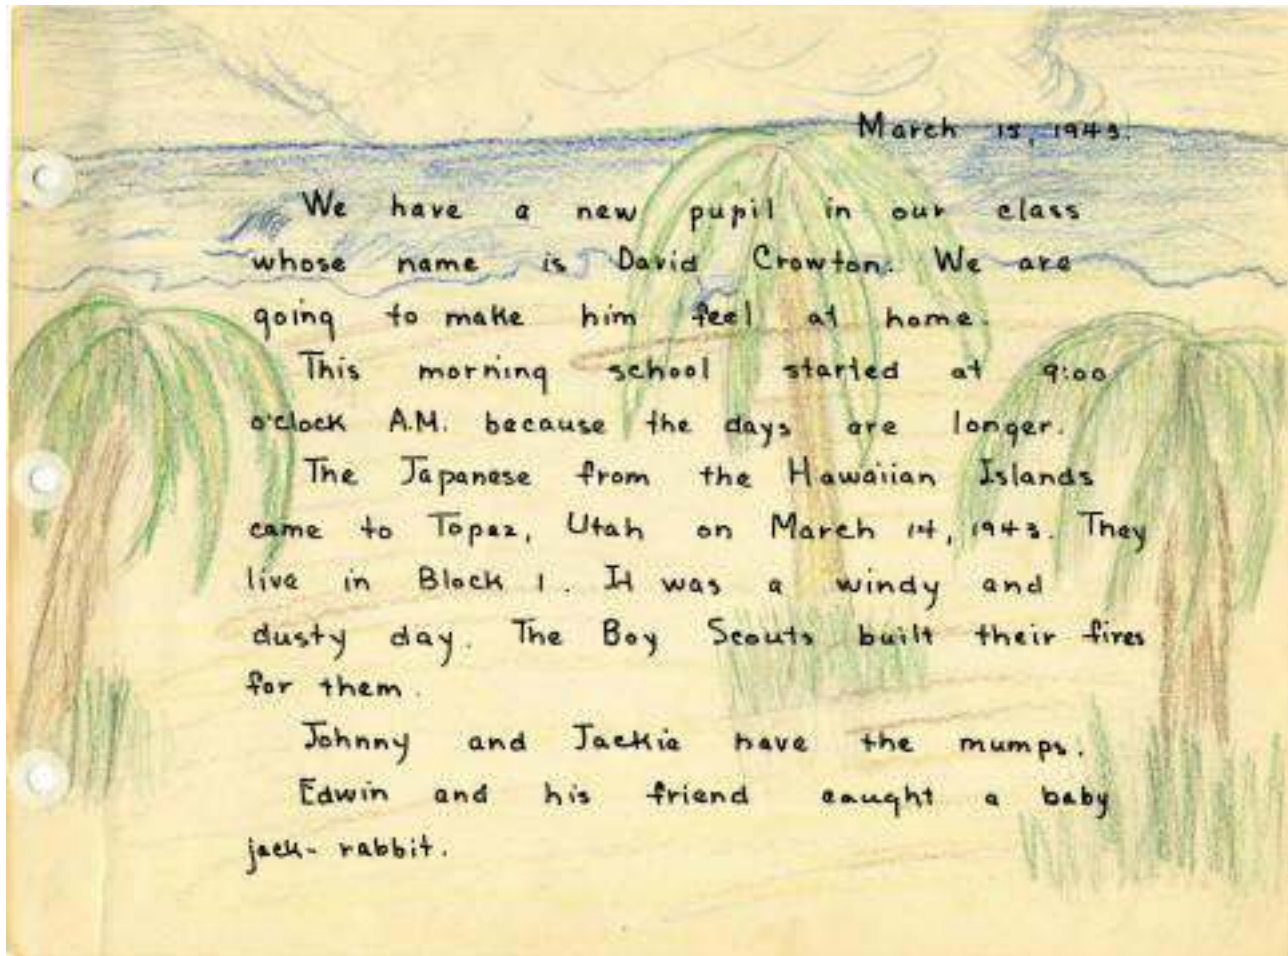 March 15, 1943.
We have a new pupil in our class
whose name is David Crowton. We are
going to make him feel at home.
This morning school started at 9:00
o'clock A.M. because the days are longer.
The Japanese from the Hawaiian Islands
came to Topaz, Utah on March 14, 1943. They
live in Block 1. It was a windy and
dusty day. The Boy Scouts built their fires
for them.
Johnny and Jackie have the mumps.
Edwin and his friend caught a baby
jack-rabbit.